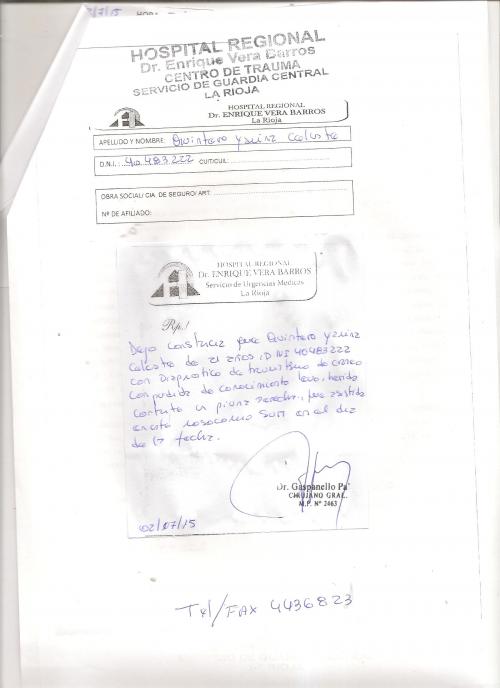 2/7/15
HOSPITAL REGIONAL
Dr. Enrique Vera Barros
CENTRO DE TRAUMA
SERVICIO DE GUARDIA CENTRAL
LA RIOJA
HOSPITAL REGIONAL
Dr. ENRIQUE VERA BARROS
La Rioja
APELLIDO Y NOMBRE: Quintero Celeste
D.N.I.: 40.483222 CUIT/CUIL:
OBRA SOCIAL/ CIA. DE SEGURO/ ART:
Nº DE AFILIADO:
HOSPITAL REGIONAL
Dr. ENRIQUE VERA BARROS
Servicio de Urgencias Medicas
La Rioja
Rp./
Dejo constancia que Quintero
Celeste de 21 años, DNI 40483222
con Diagnostico de traumatismo de craneo
con perdida de conocimiento leve, herida
cortante en pierna derecha, fue asistida
en este nosocomio en el dia
de la fecha.
Dr. Gaspanello Pa
CIRUJANO GRAL.
M.P. Nº 2463
02/07/15
Tel/FAX 4436823